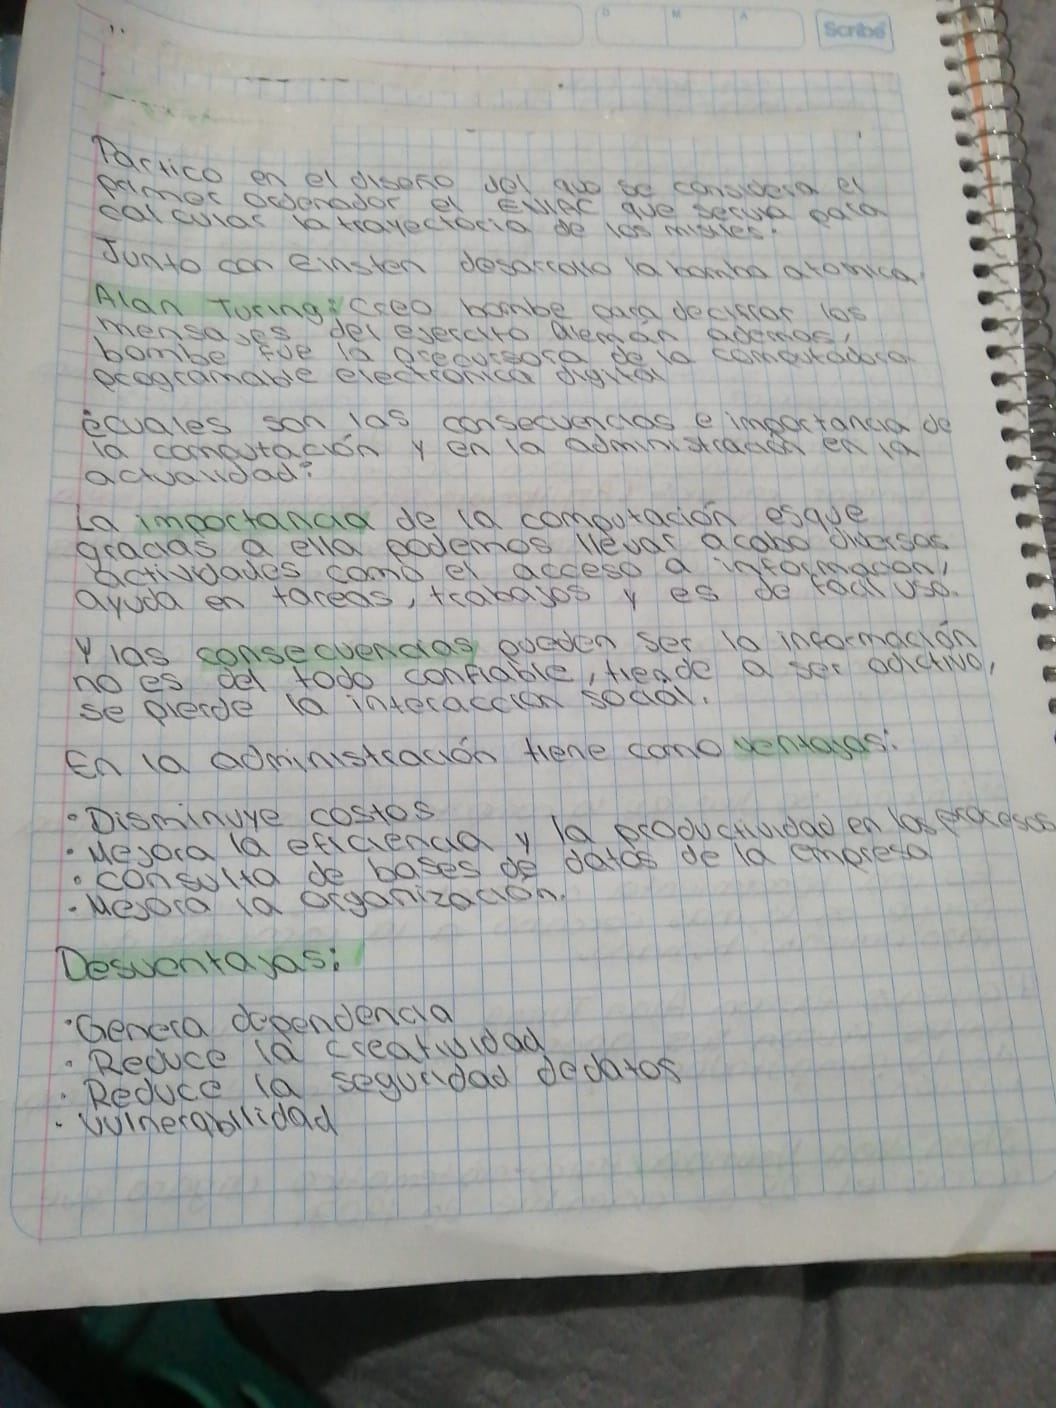 D M A
Scribe
Partico en el diseño del que se considera el
primer ordenador el ENIAC que servia para
calcular la trayectoria de los misiles.
Junto con einsten desarrollo la bomba atomica.
Alan Turing: Creo bombe para decifrar los
mensajes del ejercito alemán ademas,
bombe fue la precursora de la computadora
programable electrónica digital
¿cuales son las consecuencias e importancia de
la computación y en la administración en la
actualidad?
La importancia de la computación esque
gracias a ella podemos llevar acabo diversas
actividades como el acceso a información,
ayuda en tareas, trabajos y es de facil uso.
Y las consecuencias pueden ser la información
no es del todo confiable, tiende a ser adictivo,
se pierde la interaccion social.
En la administración tiene como ventajas:
• Disminuye costos
• Mejora la eficiencia y la productividad en los procesos
• Consulta de bases de datos de la empresa
• Mejora la organización.
Desventajas:
• Genera dependencia
• Reduce la creatividad
• Reduce la seguridad de datos
• Vulnerabilidad